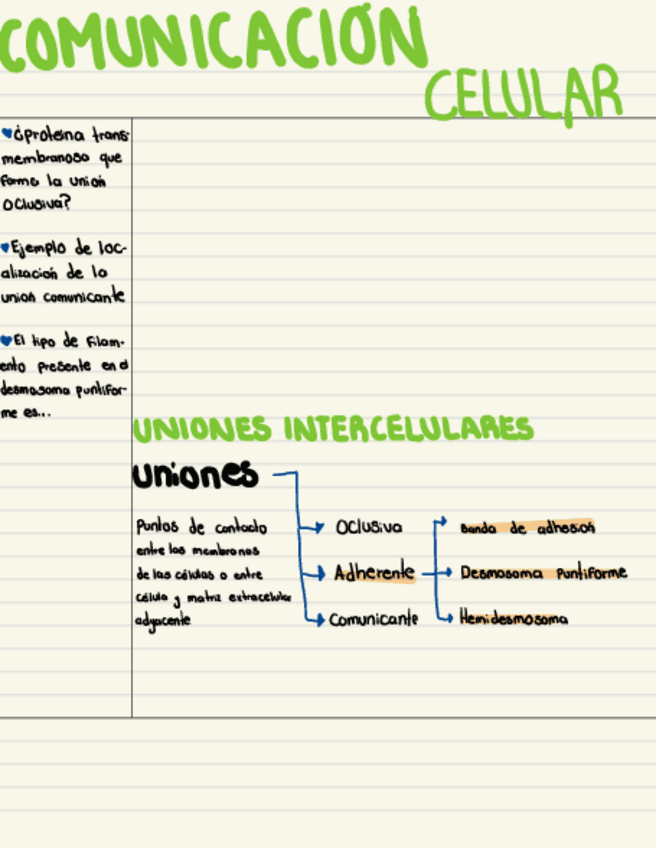 COMUNICACIÓN
CELULAR
¿proteína trans-
membranosa que
forma la unión
Oclusiva?
Ejemplo de loc-
alización de la
unión comunicante
El tipo de filam-
ento presente en el
desmosoma puntifor-
me es...
UNIONES INTERCELULARES
uniones
Puntos de contacto
entre las membranas
de las células o entre
célula y matriz extracelular
adyacente
Oclusiva
Adherente
Comunicante
Banda de adhesión
Desmosoma Puntiforme
Hemidesmosoma